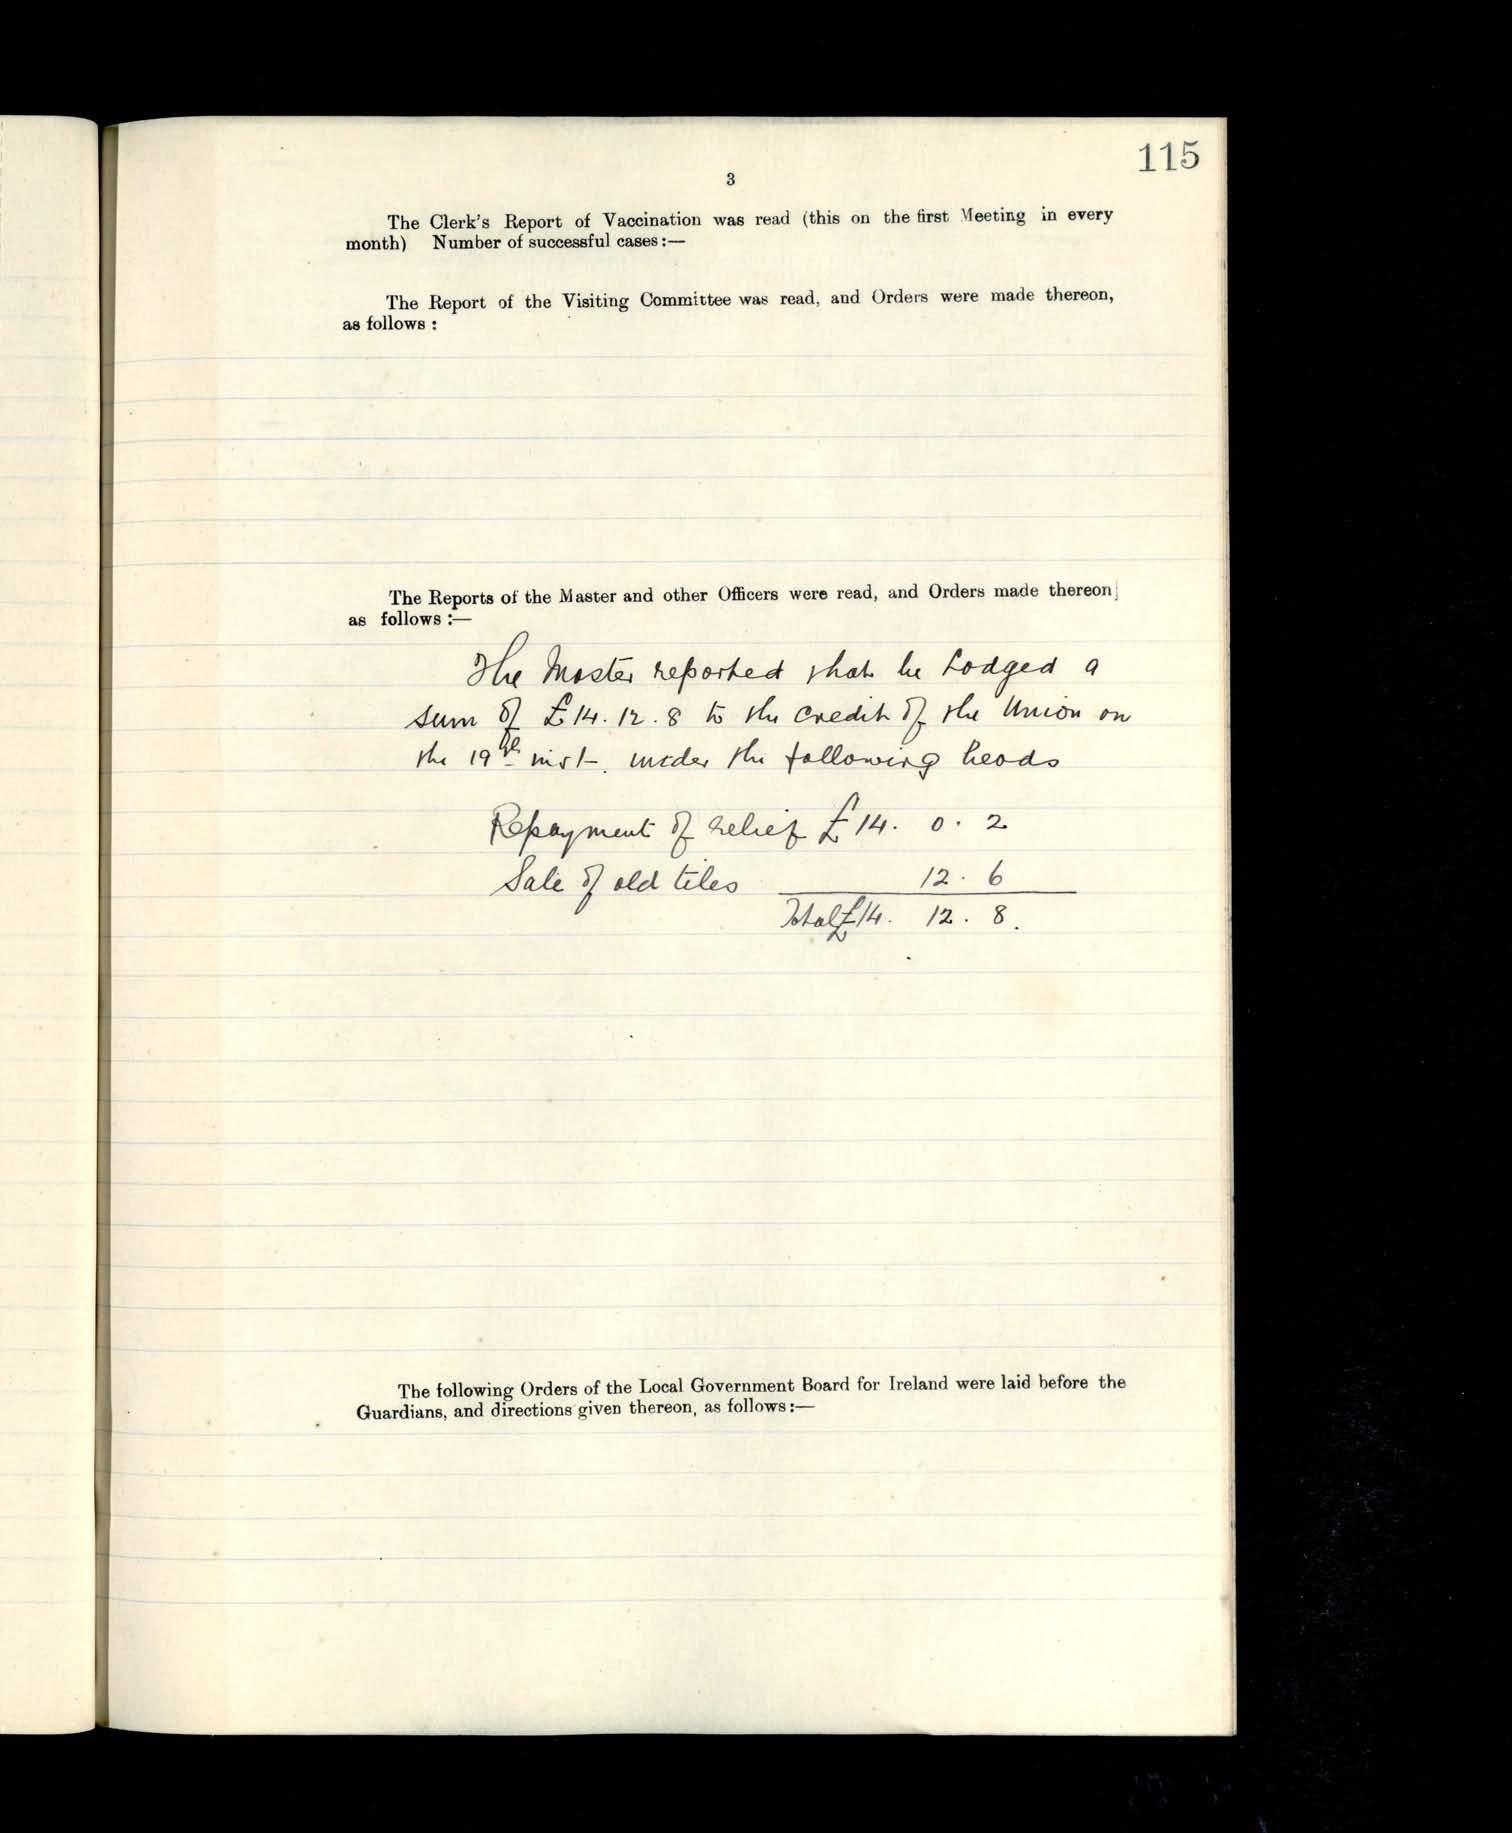 115
3
The Clerk's Report of Vaccination was read (this on the first Meeting in every
month) Number of successful cases:—
The Report of the Visiting Committee was read, and Orders were made thereon,
as follows :
The Reports of the Master and other Officers were read, and Orders made thereon,
as follows :—
The Master reported that he Lodged a
sum of £14.12.8 to the credit of the Union on
the 19th inst. under the following heads
Repayment of relief £14. 0. 2
Sale of old tiles 12. 6
Total £14. 12. 8.
The following Orders of the Local Government Board for Ireland were laid before the
Guardians, and directions given thereon, as follows:—